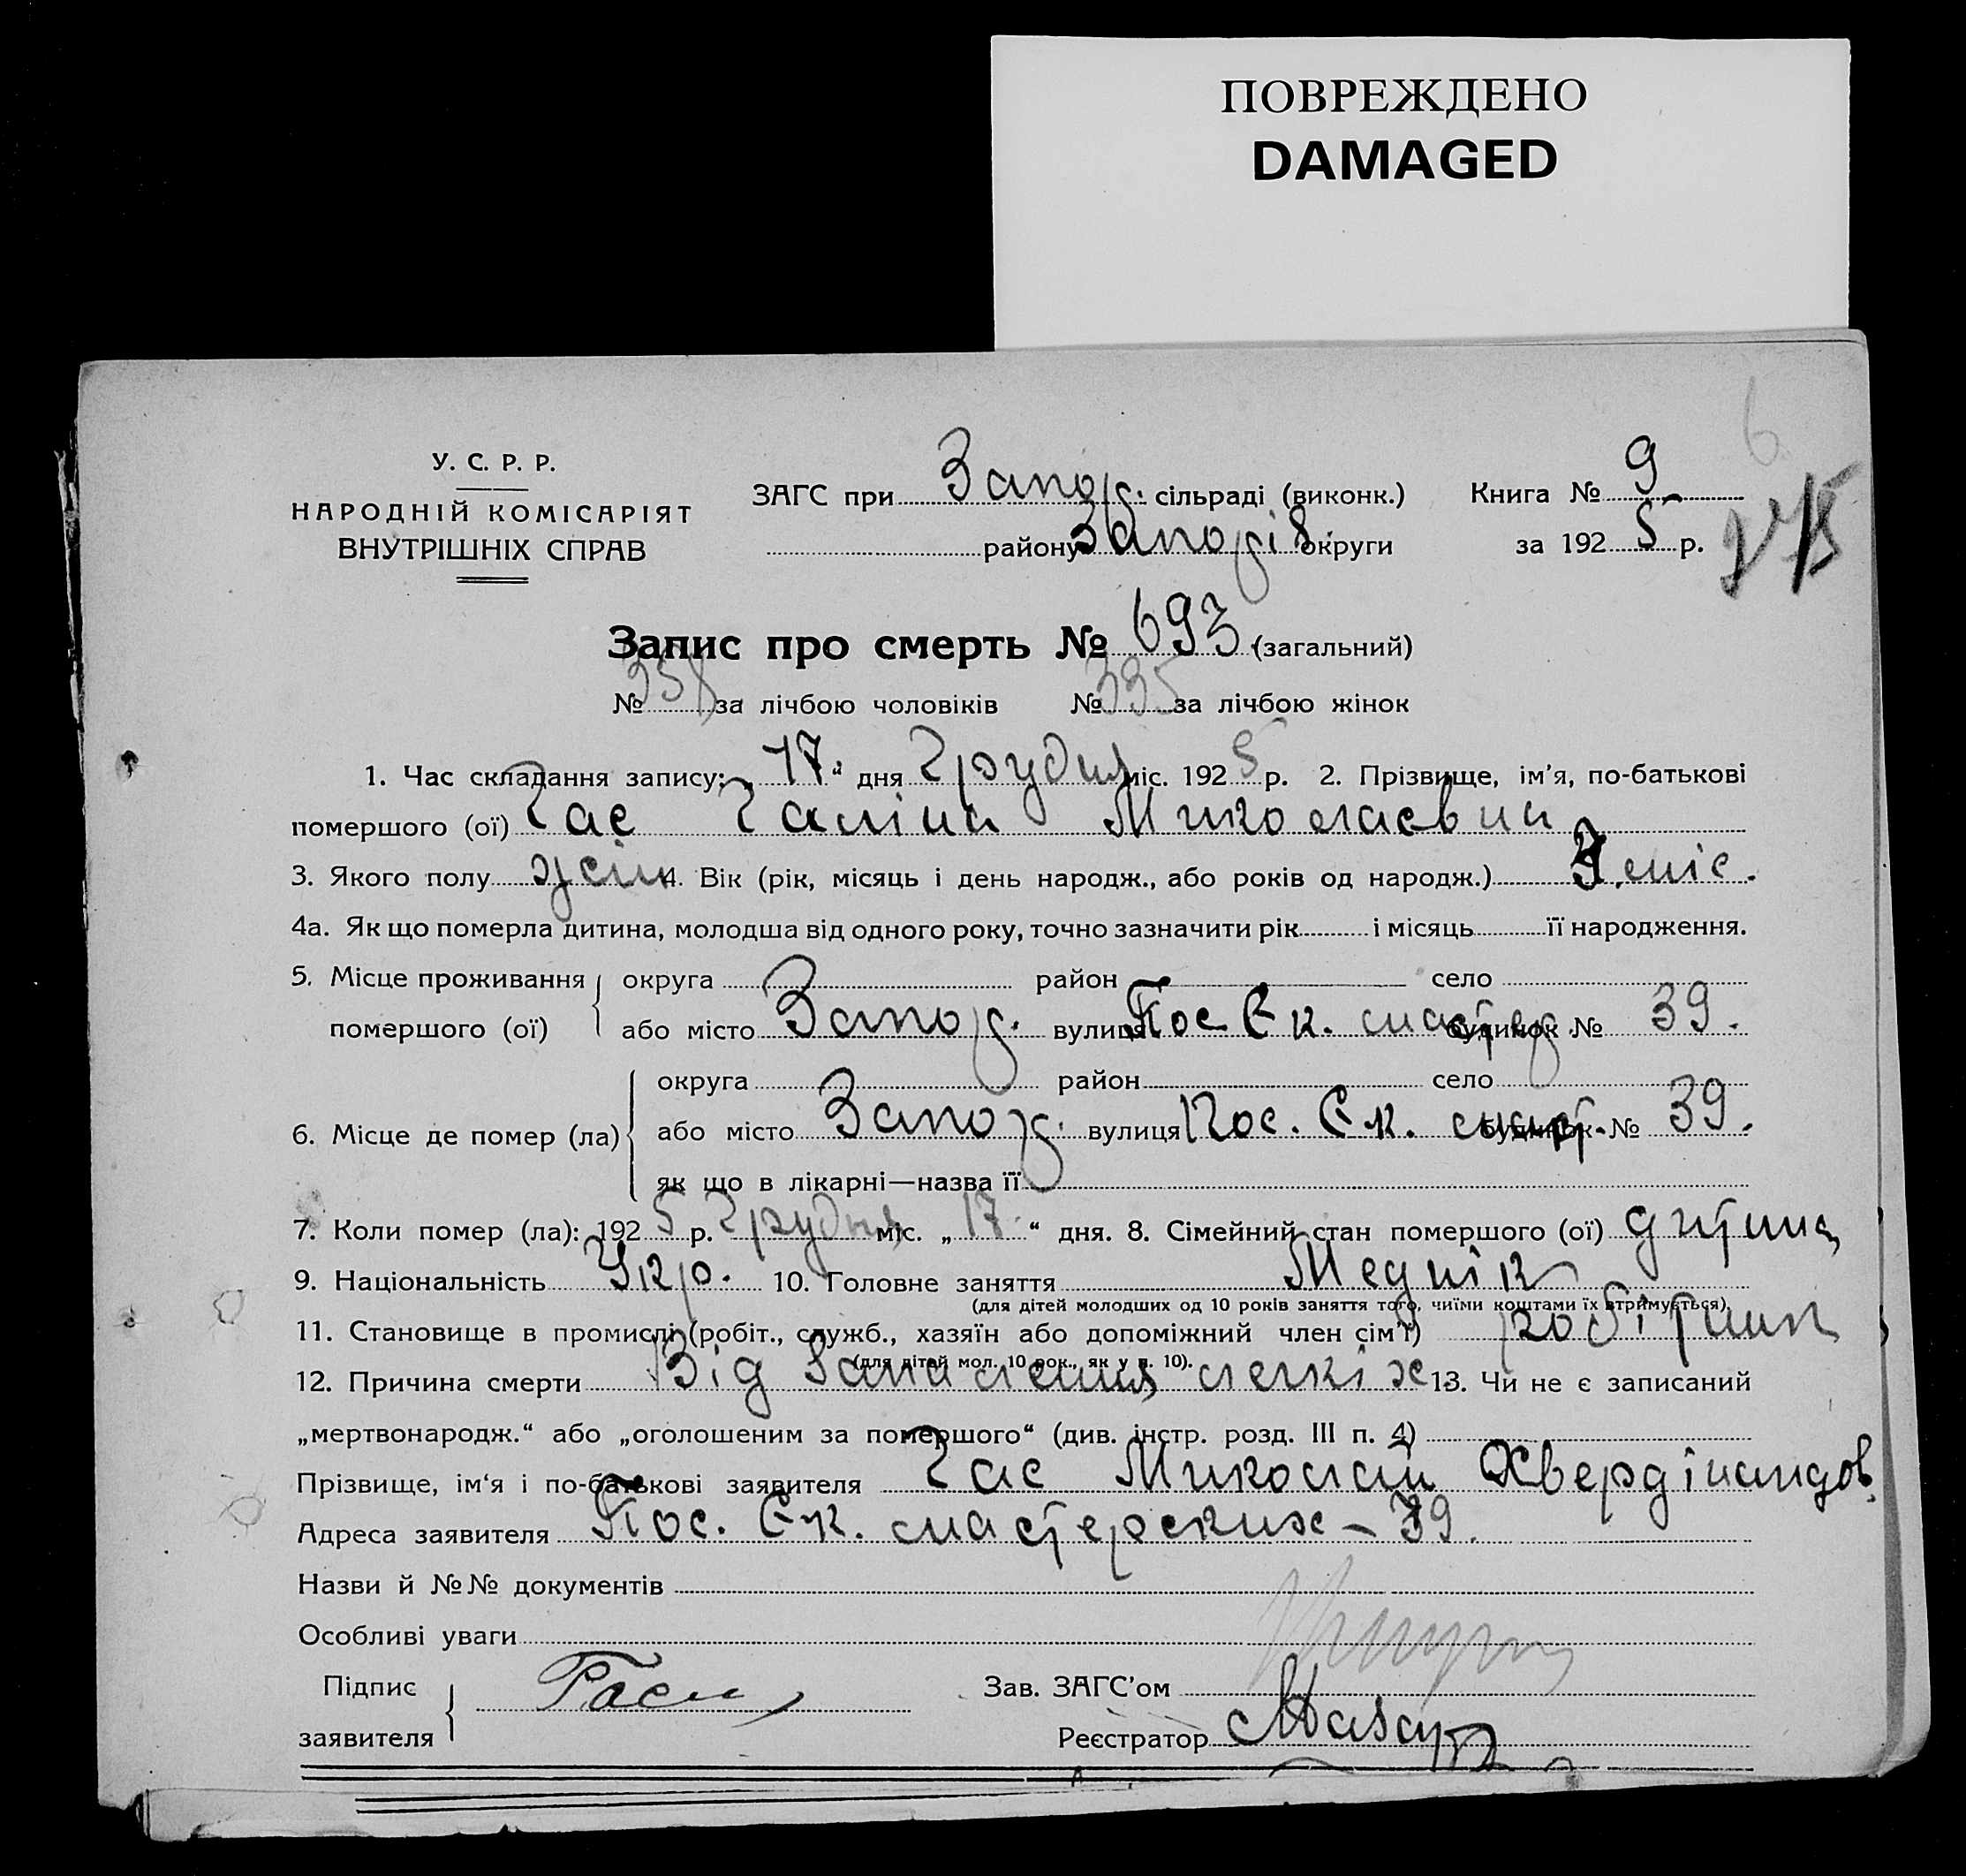 ПОВРЕЖДЕНО
DAMAGED
У. С. Р. Р.
НАРОДНІЙ КОМІСАРІЯТ
ВНУТРІШНІХ СПРАВ
ЗАГС при Запож. сільраді (виконк.) Книга № 9
району Запожіз. округи за 1925 р.
Запис про смерть № 693 (загальний)
№ 358 за лічбою чоловіків № 335 за лічбою жінок
1. Час складання запису: „17“ дня Грудня міс. 1925 р. 2. Прізвище, ім’я, по-батькові
помершого (ої) Гас Галіна Миколаєвна
3. Якого полу жін 4. Вік (рік, місяць і день народж., або років од народж.) міс.
4а. Як що померла дитина, молодша від одного року, точно зазначити рік і місяць її народження.
5. Місце проживання округа район село
помершого (ої) або місто Запож. вулиця Пос Ек. мастер будинок № 39.
округа район село
6. Місце де помер (ла) або місто Запож. вулиця Пос. Ек. маст. будинок № 39.
як що в лікарні—назва її
7. Коли помер (ла): 1925 р. Грудня міс. „17“ дня. 8. Сімейний стан помершого (ої) дитина
9. Національність Укр. 10. Головне заняття Меднік
(для дітей молодших од 10 років заняття того, чиїми коштами їх втримується).
11. Становище в промислі (робіт., служб., хазяїн або допоміжний член сім’ї) робітник
(для дітей мол. 10 рок., як у п. 10).
12. Причина смерти Від Запалення легкіх 13. Чи не є записаний
„мертвонародж.“ або „оголошеним за помершого“ (див. інстр. розд. III п. 4)
Прізвище, ім‘я і по-батькові заявителя Гас Миколай Хвердінандов.
Адреса заявителя Пос. Ек. мастерских – 39.
Назви й №№ документів
Особливі уваги
Підпис Зав. ЗАГС’ом
заявителя Реєстратор